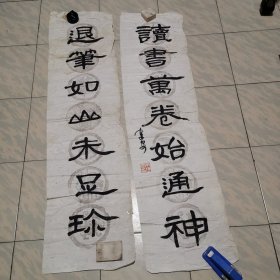 讀書萬卷始通神
退筆如山未足珍